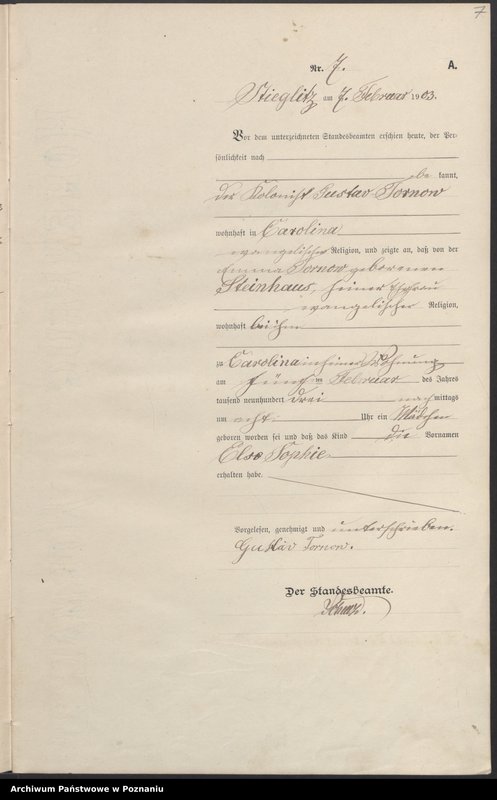 7
Nr. 7.
A.
Stieglitz am 7. Februar 1903.
Vor dem unterzeichneten Standesbeamten erschien heute, der Per-
sönlichkeit nach
be kannt,
der Kolonist Gustav Tornow
wohnhaft in Carolina
evangelischer Religion, und zeigte an, daß von der
Emma Tornow geborenen
Steinhaus, seiner Ehefrau
evangelischer Religion,
wohnhaft bei ihm
zu Carolina in seiner Wohnung
am fünften Februar des Jahres
tausend neunhundert drei nachmittags
um acht Uhr ein Mädchen
geboren worden sei und daß das Kind die Vornamen
Else Sophie
erhalten habe.
Vorgelesen, genehmigt und unterschrieben.
Gustav Tornow.
Der Standesbeamte.
Archiwum Państwowe w Poznaniu